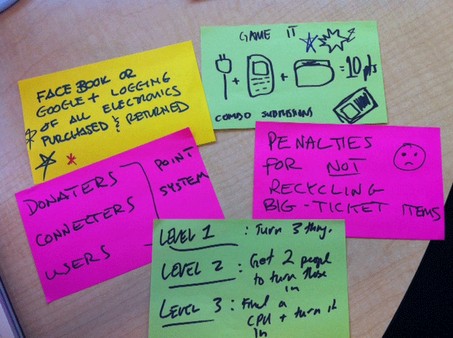 FACEBOOK OR
GOOGLE+ LOGGING
OF ALL ELECTRONICS
PURCHASED & RETURNED
GAME IT
+ + = 10 pts
COMBO SUBMISSIONS
DONATERS
CONNECTERS
USERS
POINT
SYSTEM
PENALTIES
FOR NOT
RECYCLING
BIG-TICKET ITEMS
LEVEL 1 : Turn 3 things
LEVEL 2 : Get 2 people
to turn those
in
LEVEL 3 : Find a
CPU + turn it
in